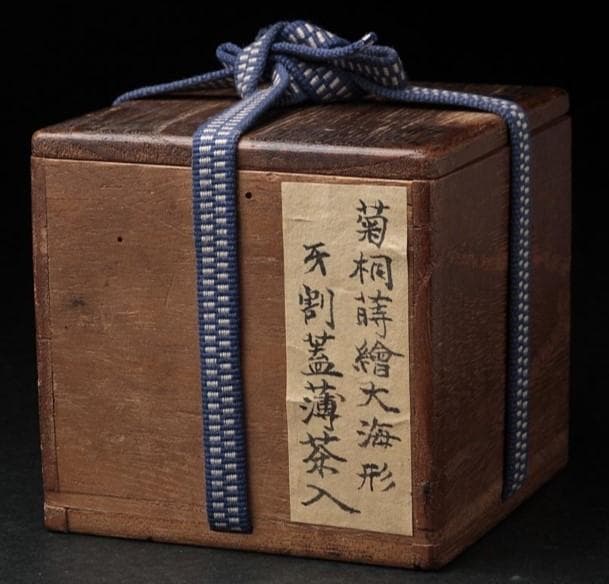 菊桐蒔繪大海形
牙割蓋薄茶入